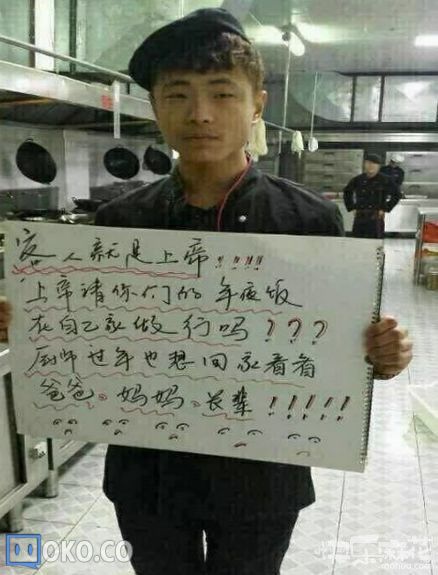 客人就是上帝!!!!!
上帝请你们的年夜饭
在自己家做行吗???
厨师过年也想回家看看
爸爸。妈妈。长辈!!!!!
OKO.CO
mohou.com